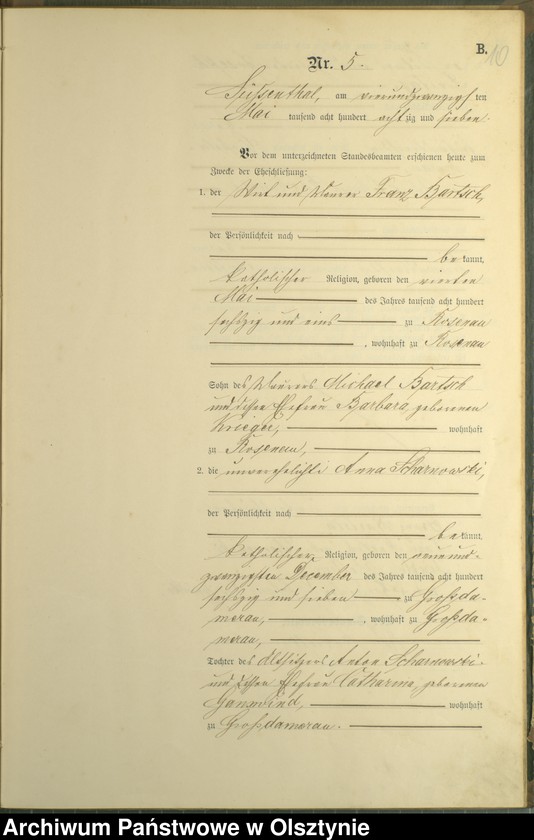 B.
10
Nr. 5.
Süssenthal, am vierundzwanzigsten
Mai tausend acht hundert achtzig und sieben.
Vor dem unterzeichneten Standesbeamten erschienen heute zum
Zwecke der Eheschließung:
1. der Wirt und Maurer Franz Bartsch,
der Persönlichkeit nach
bekannt,
katholischer Religion, geboren den vierten
Mai des Jahres tausend acht hundert
sechszig und eins zu Rosenau
, wohnhaft zu Rosenau
Sohn des Maurers Michael Bartsch
und dessen Ehefrau Barbara, geborenen
Krieger, wohnhaft
zu Rosenau,
2. die unverehelichte Anna Scharnowski,
der Persönlichkeit nach
bekannt,
katholischer Religion, geboren den neunund-
zwanzigsten December des Jahres tausend acht hundert
sechszig und sieben zu Großda-
merau, , wohnhaft zu Großda-
merau,
Tochter des Altsitzers Anton Scharnowski
und dessen Ehefrau Catharina, geborenen
Ganswind, wohnhaft
zu Großdamerau.
Archiwum Państwowe w Olsztynie